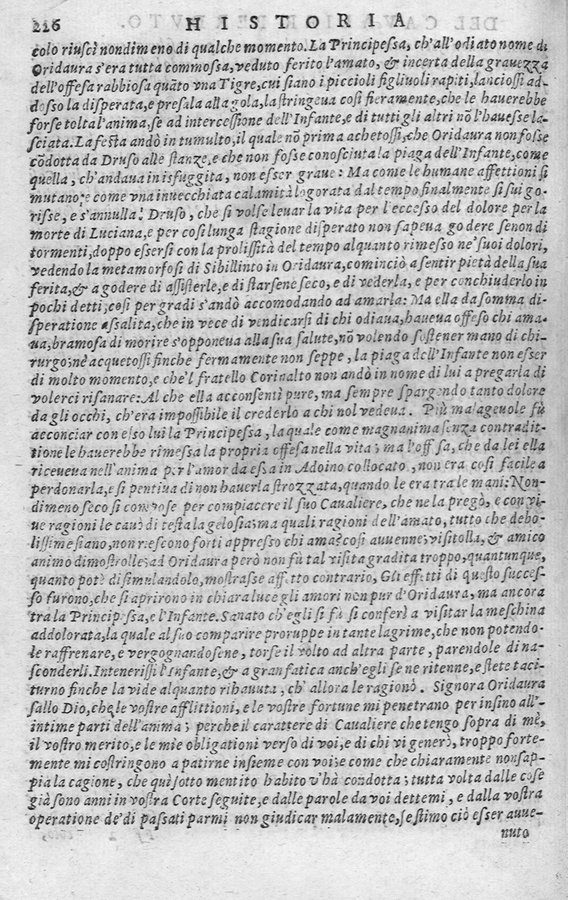 226 HISTORIA
colo riuscì nondimeno di qualche momento. La Principessa, ch'all'odiato nome di
Oridaura s'era tutta commossa, veduto ferito l'amato, & incerta della grauezza
dell'offesa rabbiosa quāto vna Tigre, cui siano i piccioli figliuoli rapiti, lanciossi ad-
dosso la disperata, e presala alla gola, la stringeua così fieramente, che le hauerebbe
forse tolta l'anima, se ad intercessione dell'Infante, e di tutti gli altri nō l'hauesse la-
sciata. La festa andò in tumulto, il quale nō prima achetossi, che Oridaura non fosse
cōdotta da Druso alle stanze, e che non fosse conosciuta la piaga dell'Infante, come
quella, ch'andaua in isfuggita, non esser graue: Ma come le humane affettioni si
mutano; e come vna inuecchiata calamità logorata dal tempo finalmente si sui go-
risse, e s'annulla! Druso, che si volse leuar la vita per l'eccesso del dolore per la
morte di Luciana, e per così lunga stagione disperato non sapeua godere senon di
tormenti, doppo essersi con la prolissità del tempo alquanto rimesso ne' suoi dolori,
vedendo la metamorfosi di Sibillinto in Oridaura, cominciò a sentir pietà della sua
ferita, & a godere di assisterle, e di starsene seco, e di vederla, e per conchiuderlo in
pochi detti, così per gradi s'andò accomodando ad amarla: Ma ella da somma di-
speratione assalita, che in vece di vendicarsi di chi odiaua, haueua offeso chi ama-
ua, bramosa di morire s'opponeua alla sua salute, nō volendo sostener mano di chi-
rurgo; nè acquetossi finche fermamente non seppe, la piaga dell'Infante non esser
di molto momento, e che'l fratello Corinalto non andò in nome di lui a pregarla di
volerci risanare: Al che ella acconsentì pure, ma sempre spargendo tanto dolore
da gli occhi, ch'era impossibile il crederlo a chi nol vedeua. Più malageuole fù
acconciar con esso lui la Principessa, la quale come magnanima senza contradit-
tione le hauerebbe rimessa la propria offesa nella vita; ma l'offesa, che da lei ella
riceueua nell'anima per l'amor da essa in Adoino collocato, non era così facile a
perdonarla, e si pentiua di non hauerla strozzata, quando le era tra le mani: Non-
dimeno seco si compose per compiacere il suo Caualiere, che ne la pregò, e con vi-
ue ragioni le cauò di testa la gelosia; ma quali ragioni dell'amato, tutto che debo-
lissime siano, non riescono forti appresso chi ama? così auuenne; visitolla, & amico
animo dimostrolle; ad Oridaura però non fù tal visita gradita troppo, quantunque,
quanto potè dissimulandolo, mostrasse affetto contrario, Gli effetti di questo succes-
so furono, che si aprirono in chiara luce gli amori non pur d'Oridaura, ma ancora
tra la Principessa, e l'Infante. Sanato ch'egli si fù si conferì a visitar la meschina
addolorata, la quale al suo comparire proruppe in tante lagrime, che non potendo-
le raffrenare, e vergognandosene, torse il volto ad altra parte, parendole di na-
sconderli. Intenerissi l'Infante, & a gran fatica anch'egli se ne ritenne, e stete taci-
turno finche la vide alquanto rihauuta, ch'allora le ragionò. Signora Oridaura
sallo Dio, che le vostre afflittioni, e le vostre fortune mi penetrano per insino all'-
intime parti dell'anima; perche il carattere di Caualiere che tengo sopra di me,
il vostro merito, e le mie obligationi verso di voi, e di chi vi generò, troppo forte-
mente mi costringono a patirne insieme con voi; e come che chiaramente non sap-
pia la cagione, che quì sotto mentito habito v'hà condotta; tutta volta dalle cose
già sono anni in vostra Corte seguite, e dalle parole da voi dettemi, e dalla vostra
operatione de' dì passati parmi non giudicar malamente, se stimo ciò esser auue-
nuto